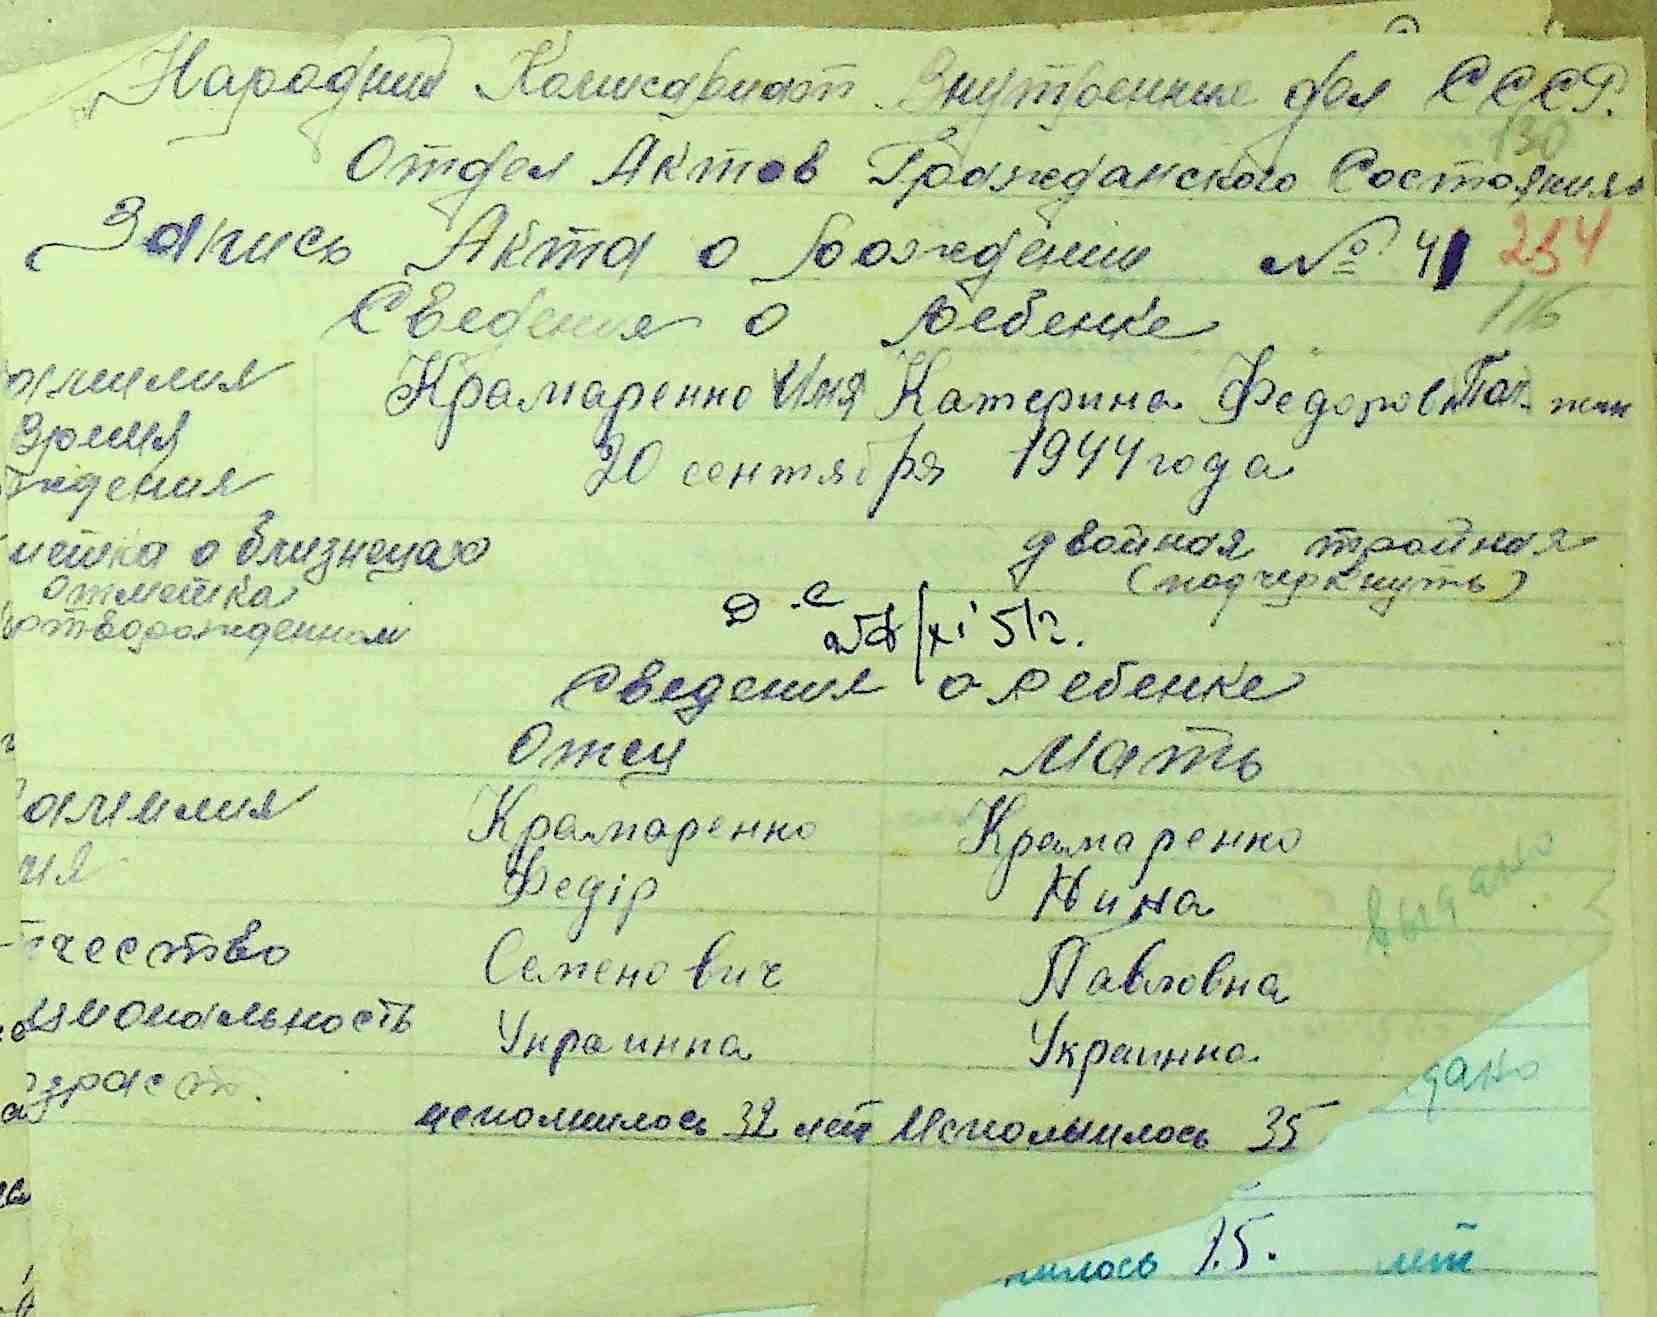 Народний Комисариат Внутренние дел СССР.
130
Отдел Актов Гражданского Состояния
Запись Акта о рождении № 41 234
116
Сведения о ребенке
амилия Крамаренко Имя Катерина Федоровн Пол жен
Время
ждения 20 сентября 1944 года
метка о близнецах двойная тройная
(подчеркнуть)
Отметка
ртворожденном
51г.
Сведения о ребенке
Отец Мать
амилия Крамаренко Крамаренко
мя Федір Нина
чество Семенович Павловна
циональность Украинка Украинка
выдано
зраст. исполнилось 32 лет Исполнилось 35
дано
нилось 25. лет